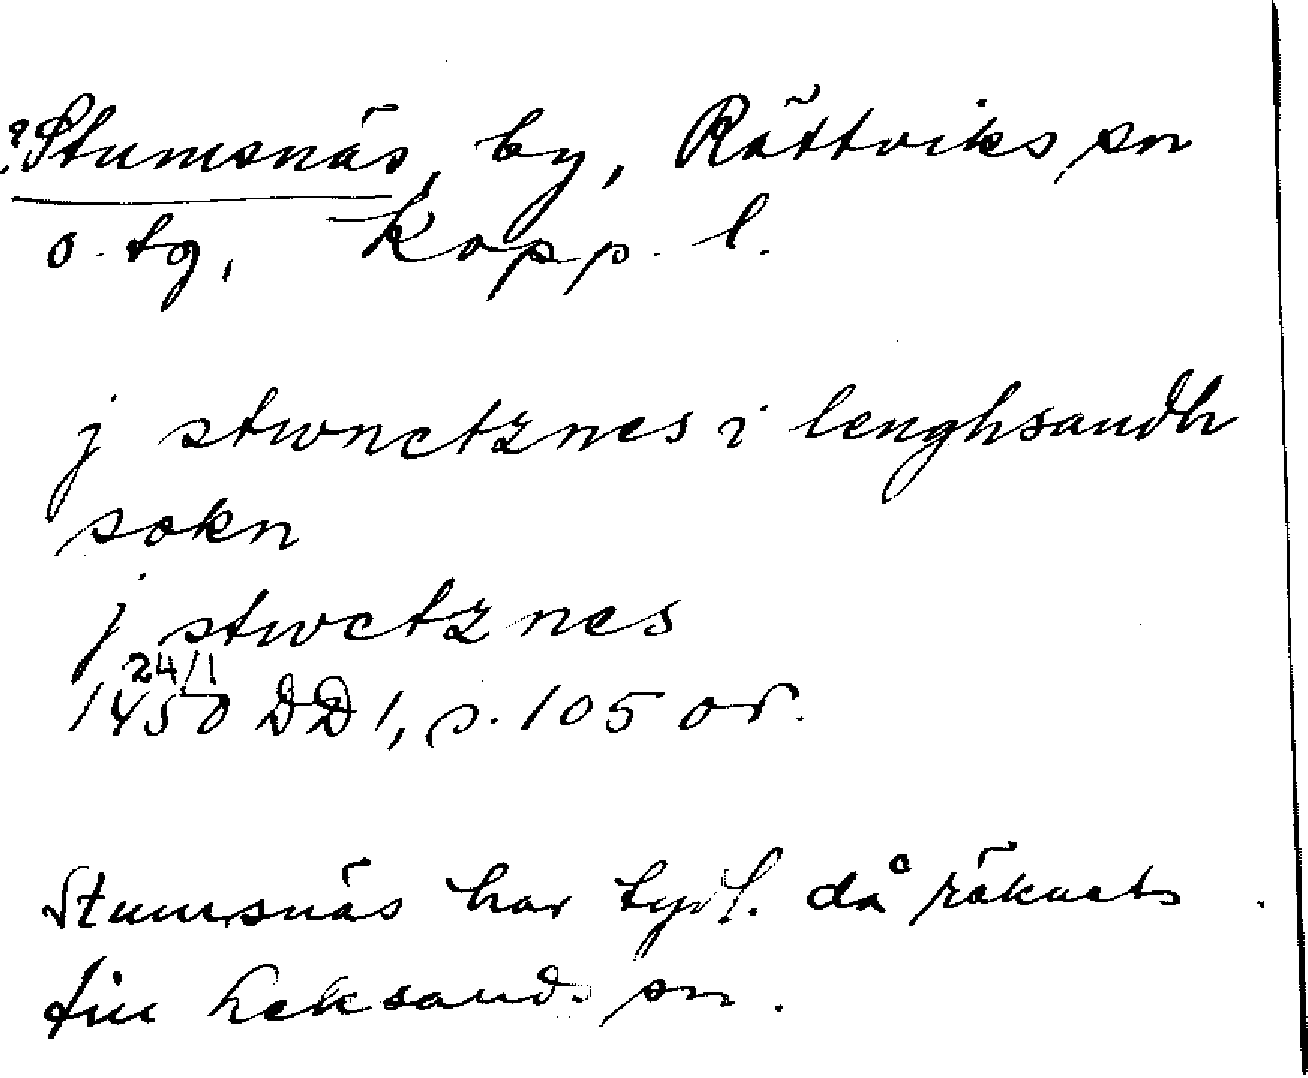 ?Stumsnäs, by, Rättviks sn
o. tg, Kopp. l.
j stwnctznes i lenghsandh
sokn
j stwctznes
24/1
1450 DD 1, s. 105 or.
Stumsnäs har tydl. då räknats
till Leksands sn.